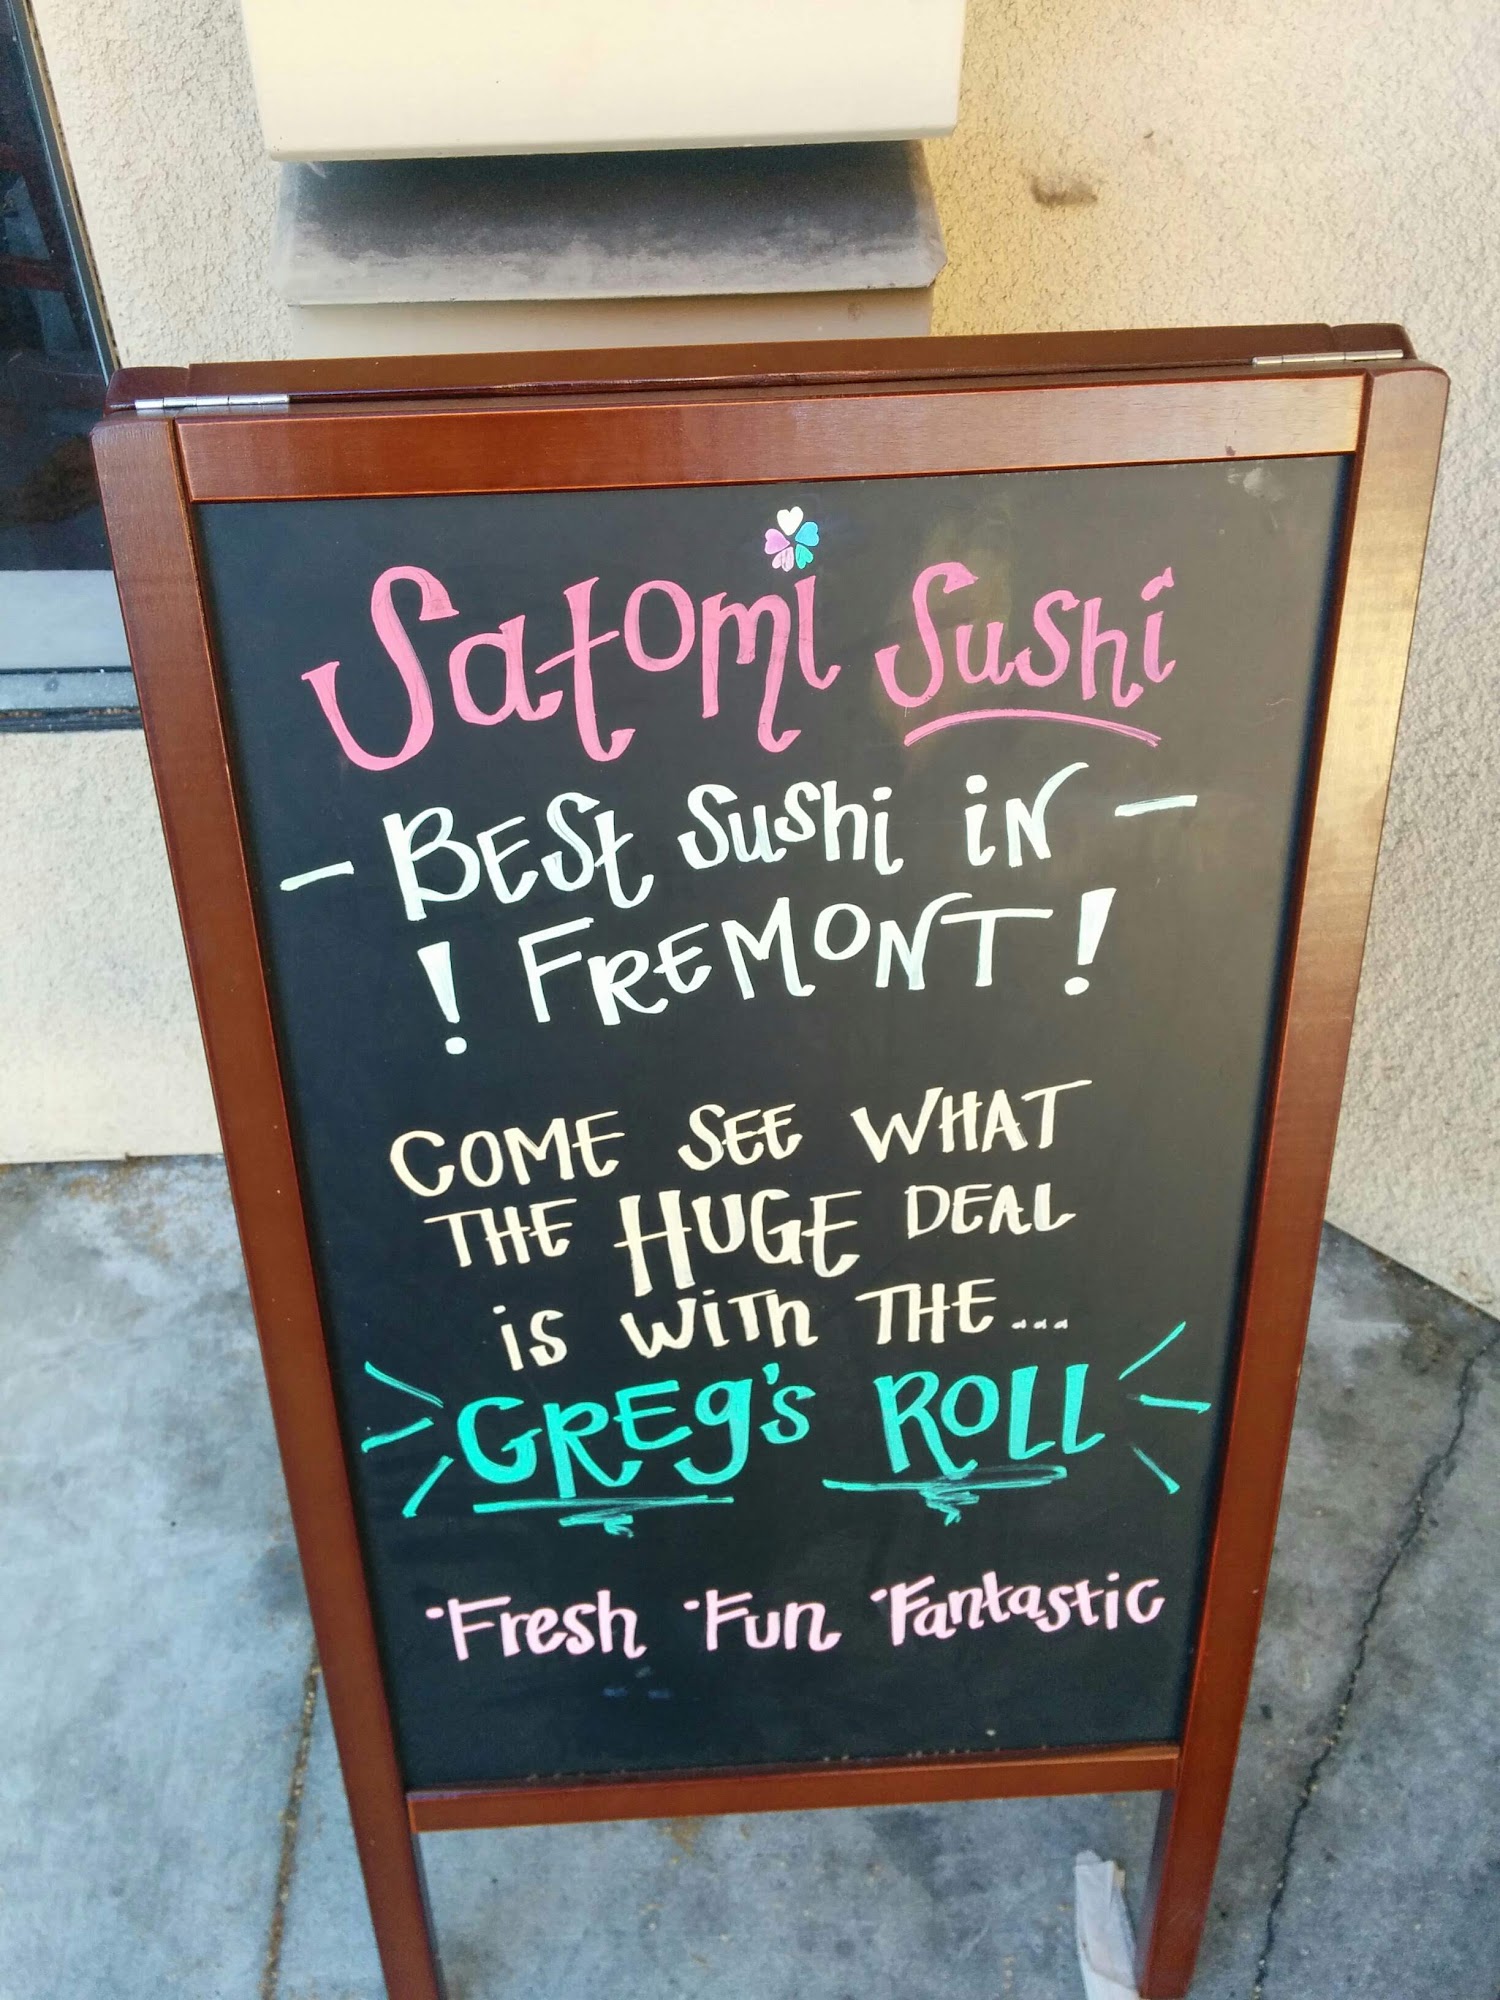 Satomi Sushi
- BESt SuShi iN -
! FREMONT !
COME SEE WHAT
THE HUGE DEAL
is WiTh THE...
GREg's ROLL
·Fresh ·Fun ·Fantastic